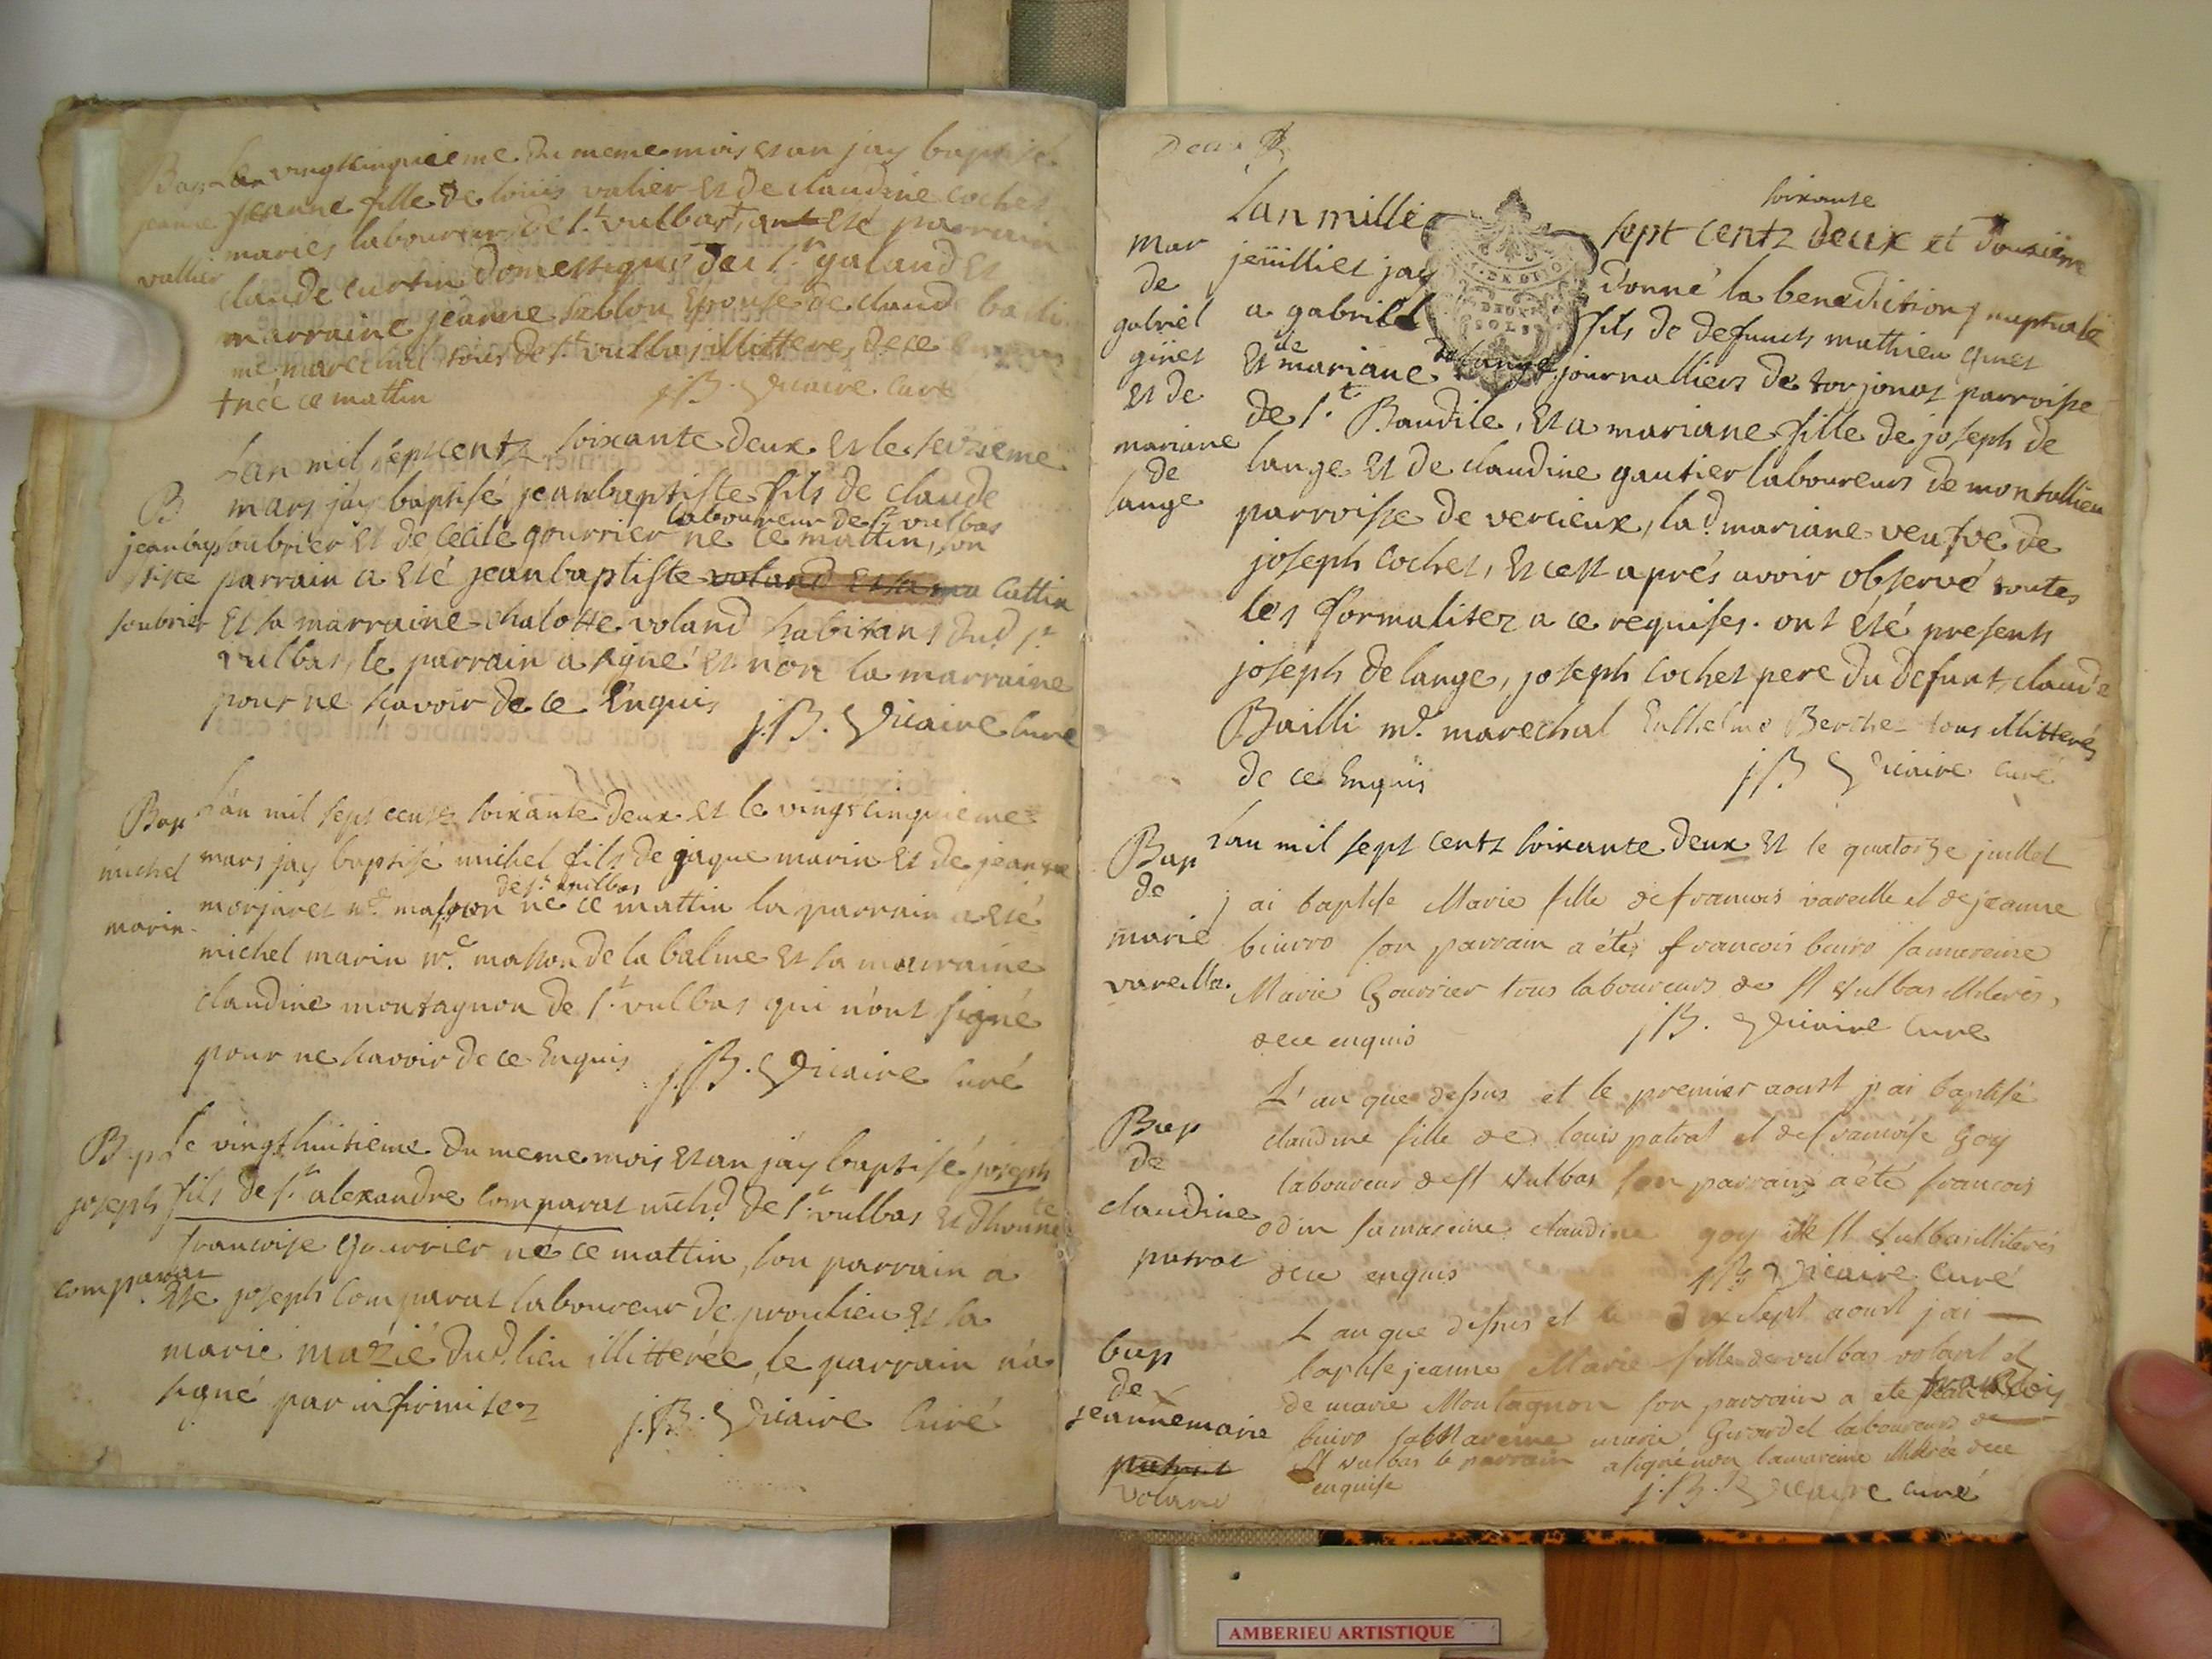 Bap le vingtcinquieme du meme mois et an jay baptisé
jeanne jeanne fille de loüis valier et de claudine cochet
mariés laboureur de St. vulbas, ont eté parrain
vallier claude curtin domestique de Sr galand et
marraine jeanne sablon epouse de claud bailli
me. marechal tous de St. vulbas illitteres de ce enquis
+ née ce mattin j.B. Vicaire Curé
Lan mil septcentz soixante deux et le seizieme
B mars jay baptisé jeanbaptiste fils de claude
laboureur de St vulbas
jeanbap soubrier et de cecile gourrier né ce mattin, son
tiste parrain a eté jeanbaptiste voland et sa ma Cattin
soubrier et sa marraine chalotte voland habitans dud. St.
vulbas, le parrain a signé et non la marraine
pour ne scavoir de ce Enquis j.B. Vicaire Curé
Bap Lan mil sept centz soixante deux et le vingtcinquieme
michel mars jay baptisé michel fils de jaque marin et de jeanne
de St. vulbas
marin morjaret me. masson né ce mattin la parrain a eté
michel marin me. masson de la balme et sa marraine
claudine montagnon de St. vulbas qui n'ont signé
pour ne scavoir de ce Enquis j.B. Vicaire Curé
Bap le vingthuitieme du meme mois et an jay baptisé joseph
joseph fils de Sr. alexandre comparat mchd. de St. vulbas et dhonnete
francoise gourrier né ce mattin, son parrain a
comparat eté joseph Comparat laboureur de proulieu et la
marie mazié dud. lieu illitterée, le parrain n'a
signé par infirmitez j.B. Vicaire Curé
Deux
soixante
Lan mille sept centz deux et douzieme
Mar de gabriel ginet et de mariane de lange
jeüilliet jay donné la benediction nuptiale
a gabriel fils de defuncts mathieu ginet
et de mariane delange journalliers de torjonas parroisse
de St. Baudile, et a mariane fille de joseph de
lange et de claudine gautier laboureurs de montallieu
parroisse de vercieux, lad. mariane veufve de
joseph cochet, et cest aprés avoir observé toutes
les formalitez a ce requises. ont été presents
joseph delange, joseph cochet pere du defunt claude
Bailli me. marechal Enthelme Berthe tous illitterés
de ce Enquis j.B. Vicaire Curé
Bap de marie vareille.
Lan mil sept centz soixante deux et le quatorze juillet
j ai baptise Marie fille de francois vareille et de jeanne
biurro son parrain a été francois buiro sa mareine
Marie Gourrier tous laboureurs de St vulbas illiterés,
de ce enquis j.B. Vicaire Curé
Bap de claudine patrat
L'an que dessus et le premier aoust j'ai baptisé
claudine fille de louis patrat et de francoise Goy
laboureur de St vulbas son parrain a été francois
odin sa mareine claudine goy de St vulbas illiterés
de ce enquis j.B. Vicaire Curé
bap de jeannemarie patrat voland
L an que dessus et le dix sept aoust j ai
baptise jeanne Marie fille de vulbas volant et
de marie Montagnon son parrain a ete francois
buiro sa Mareine marie Girardet laboureurs de
St vulbas le parrain a signé non la mareine illitérée de ce
enquise j.B. Vicaire curé
AMBERIEU ARTISTIQUE